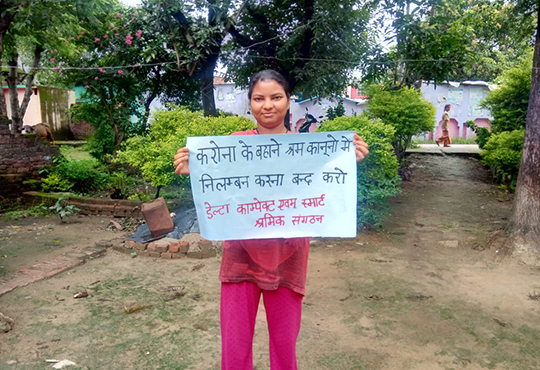 करोना के बहाने श्रम कानूनो मे
निलम्बन करना बन्द करो
डेल्टा काम्पेक्ट एवम स्मार्ट
श्रमिक संगठन